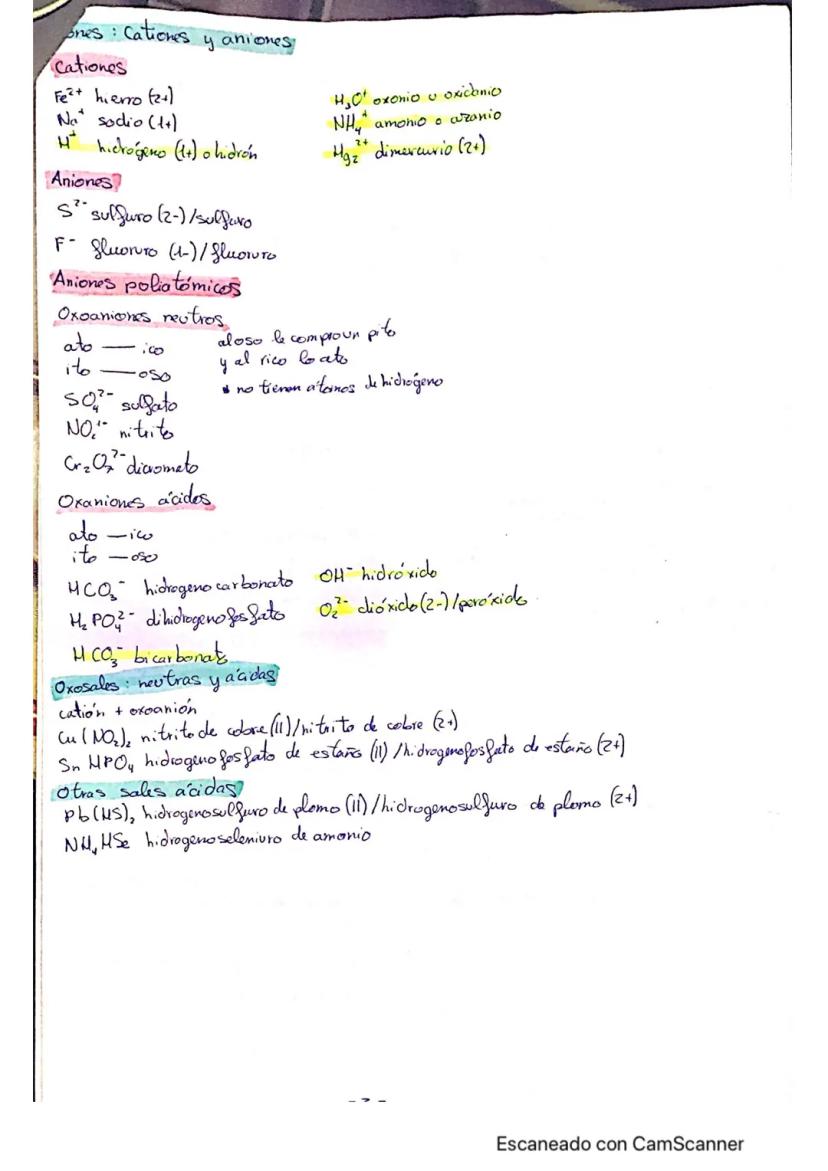 ones : Cationes y aniones
Cationes
Fe²⁺ hierro (2+)
Na⁺ sodio (1+)
H⁺ hidrógeno (1+) o hidrón
H₃O⁺ oxonio u oxidonio
NH₄⁺ amonio o azanio
Hg₂²⁺ dimercurio (2+)
Aniones
S²⁻ sulfuro (2-)/sulfuro
F⁻ fluoruro (1-)/fluoruro
Aniones poliatómicos
Oxoaniones neutros
ato — ico
ito — oso
al oso le compro un pito
y al rico lo ato
* no tienen atomos de hidrógeno
SO₄²⁻ sulfato
NO₂¹⁻ nitrito
Cr₂O₇²⁻ dicromato
Oxaniones ácidos
ato — ico
ito — oso
HCO₃⁻ hidrogenocarbonato
H₂PO₄²⁻ dihidrogenofosfato
HCO₃⁻ bicarbonato
OH⁻ hidróxido
O₂²⁻ dióxido(2-)/peróxido
Oxosales : neutras y ácidas
catión + oxoanión
Cu(NO₂)₂ nitrito de cobre (II)/nitrito de cobre (2+)
SnHPO₄ hidrogenofosfato de estaño (II) /hidrogenofosfato de estaño (2+)
Otras sales ácidas
Pb(HS)₂ hidrogenosulfuro de plomo (II)/hidrogenosulfuro de plomo (2+)
NH₄HSe hidrogenoseleniuro de amonio
Escaneado con CamScanner